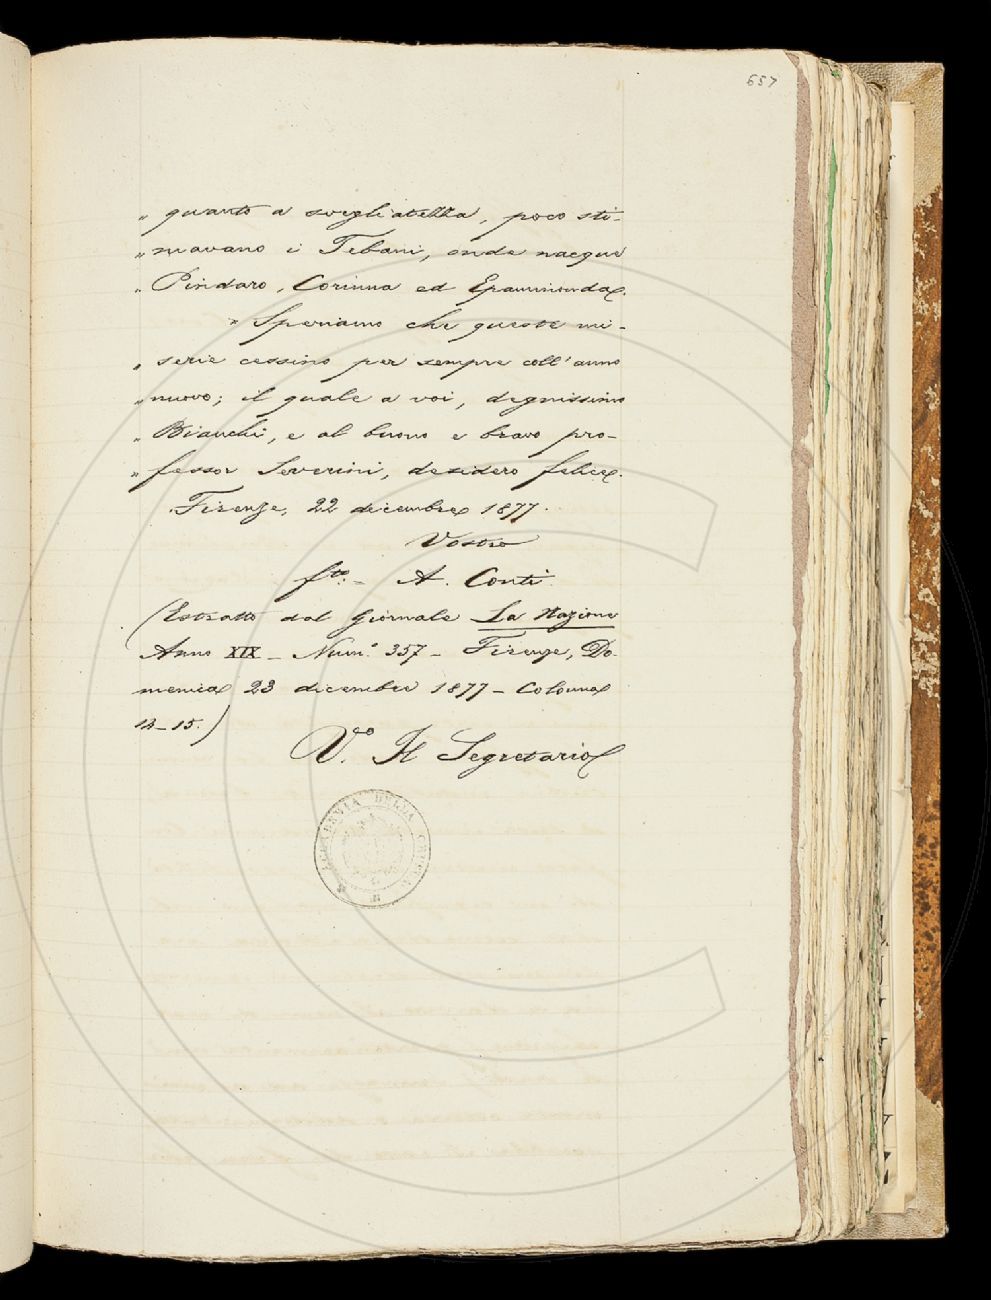 657
„ quanto a svegliatezza, poco sti-
„ mavano i Tebani, onde nacque
„ Pindaro, Corinna ed Epaminonda.
„ Speriamo che queste mi-
„ serie cessino per sempre coll'anno
„ nuovo; il quale a voi, degnissimo
„ Bianchi, e al buono e bravo pro-
„ fessor Severini, desidero felice.
Firenze, 22 dicembre 1877.
Vostro
f.to - A. Conti
(Estratto dal Giornale La Nazione
Anno XIX - Num.o 357 - Firenze, Do-
menica 23 dicembre 1877 - Colonna
14-15.)
V.o Il Segretario
ACCADEMIA DELLA CRUSCA